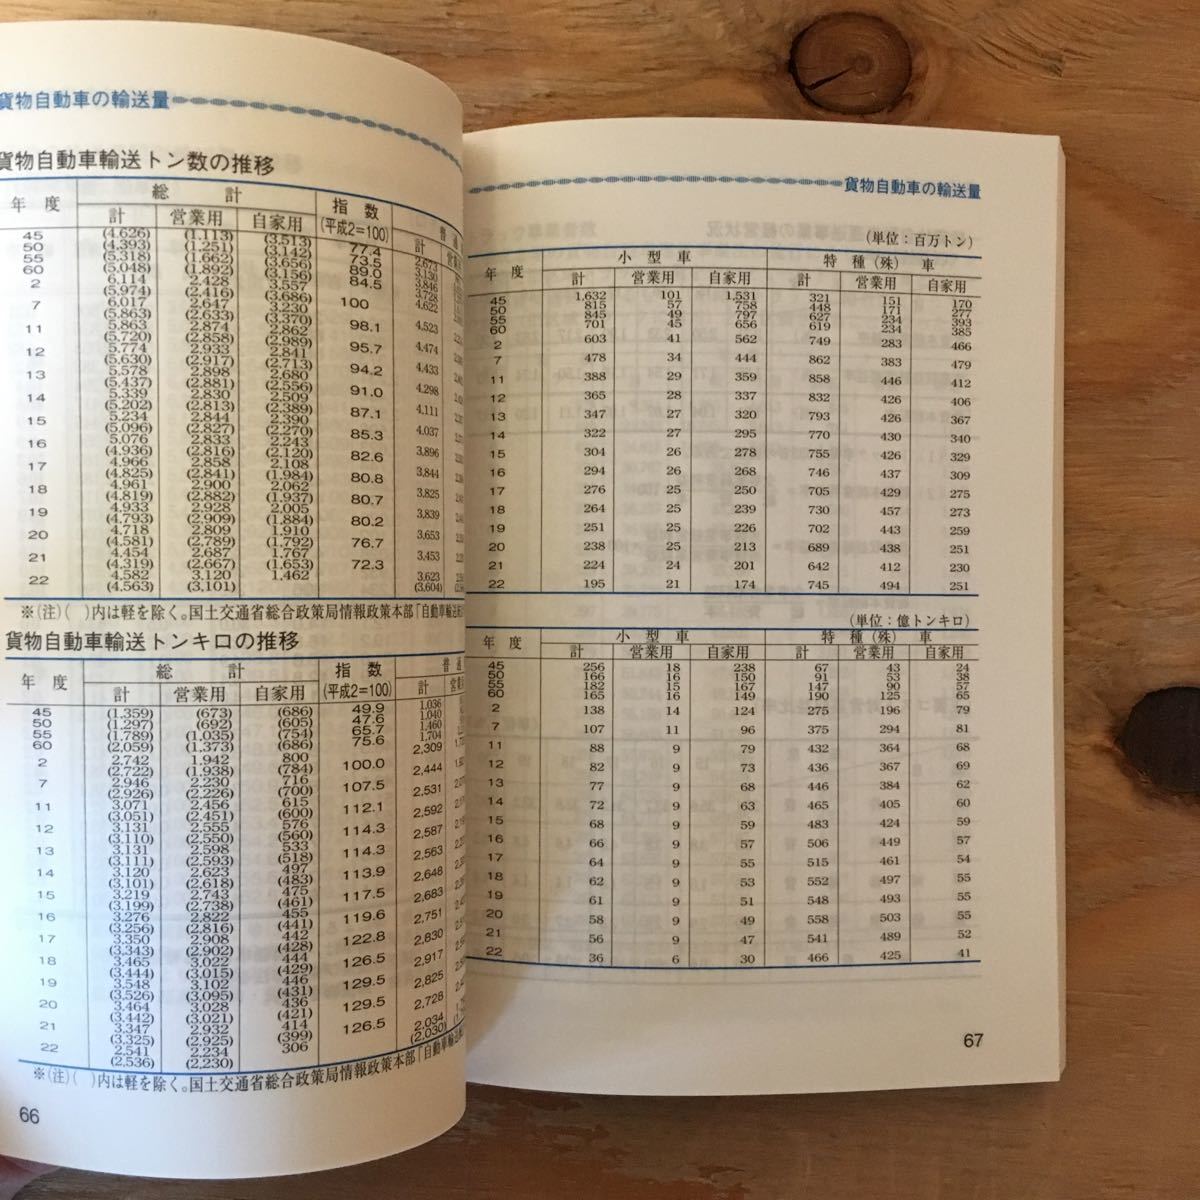 貨物自動車の輸送量
貨物自動車輸送トン数の推移
年 度 総 計 指 数 (平成2=100) 普 通
計 営業用 自家用 計
45 (4.626) (1.113) (3.513) 77.4 2.673
50 (4.393) (1.251) (3.142) 73.5 3.130
55 (5.318) (1.662) (3.656) 89.0 3.846
60 (5.048) (1.892) (3.156) 84.5 3.728
2 6.114 2.428 3.557 100 4.622
(5.974) (2.416) (3.686)
7 6.017 2.647 3.230 98.1 4.523
(5.863) (2.633) (3.370)
11 5.863 2.874 2.862 95.7 4.474
(5.720) (2.858) (2.989)
12 5.774 2.933 2.841 94.2 4.433
(5.630) (2.917) (2.713)
13 5.578 2.898 2.680 91.0 4.298
(5.437) (2.881) (2.556)
14 5.339 2.830 2.509 87.1 4.111
(5.202) (2.813) (2.389)
15 5.234 2.844 2.390 85.3 4.037
(5.096) (2.827) (2.270)
16 5.076 2.833 2.243 82.6 3.896
(4.936) (2.816) (2.120)
17 4.966 2.858 2.108 80.8 3.844
(4.825) (2.841) (1.984)
18 4.961 2.900 2.062 80.7 3.825
(4.819) (2.882) (1.937)
19 4.933 2.928 2.005 80.2 3.839
(4.793) (2.909) (1.884)
20 4.718 2.809 1.910 76.7 3.653
(4.581) (2.789) (1.792)
21 4.454 2.687 1.767 72.3 3.453
(4.319) (2.667) (1.653)
22 4.582 3.120 1.462 3.623
(4.563) (3.101) (3.604)
※(注)( )内は軽を除く。国土交通省総合政策局情報政策本部「自動車輸送統
貨物自動車輸送トンキロの推移
年 度 総 計 指 数 (平成2=100) 普 通
計 営業用 自家用 計
45 (1.359) (673) (686) 49.9 1.036
50 (1.297) (692) (605) 47.6 1.040
55 (1.789) (1.035) (754) 65.7 1.460
60 (2.059) (1.373) (686) 75.6 1.704
2 2.742 1.942 800 100.0 2,309
(2.722) (1.938) (784)
7 2.946 2.230 716 107.5 2,444
(2.926) (2.226) (700)
11 3.071 2.456 615 112.1 2,531
(3.051) (2.451) (600)
12 3.131 2.555 576 114.3 2,592
(3.110) (2.550) (560)
13 3.131 2.598 533 114.3 2,587
(3.111) (2.593) (518)
14 3.120 2.623 497 113.9 2,563
(3.101) (2.618) (483)
15 3.219 2.743 475 117.5 2,648
(3.199) (2.738) (461)
16 3.276 2.822 455 119.6 2,683
(3.256) (2.816) (441)
17 3.350 2.908 442 122.8 2,751
(3.343) (2.902) (428)
18 3.465 3.022 444 126.5 2,830
(3.444) (3.015) (429)
19 3.548 3.102 446 129.5 2,917
(3.526) (3.095) (431)
20 3.464 3.028 436 129.5 2,825
(3.442) (3.021) (421)
21 3.347 2.932 414 126.5 2,728
(3.325) (2.925) (399)
22 2.541 2.234 306 2,034
(2.536) (2.230) (2,030)
※(注)( )内は軽を除く。国土交通省総合政策局情報政策本部「自動車輸
66
貨物自動車の輸送量
(単位:百万トン)
年 度 小 型 車 特 種 (殊) 車
計 営業用 自家用 計 営業用 自家用
45 1,632 101 1,531 321 151 170
50 815 57 758 448 171 277
55 845 49 797 627 234 393
60 701 45 656 619 234 385
2 603 41 562 749 283 466
7 478 34 444 862 383 479
11 388 29 359 858 446 412
12 365 28 337 832 426 406
13 347 27 320 793 426 367
14 322 27 295 770 430 340
15 304 26 278 755 426 329
16 294 26 268 746 437 309
17 276 25 250 705 429 275
18 264 25 239 730 457 273
19 251 25 226 702 443 259
20 238 25 213 689 438 251
21 224 24 201 642 412 230
22 195 21 174 745 494 251
(単位:億トンキロ)
年 度 小 型 車 特 種 (殊) 車
計 営業用 自家用 計 営業用 自家用
45 256 18 238 67 43 24
50 166 16 150 91 53 38
55 182 15 167 147 90 57
60 165 16 149 190 125 65
2 138 14 124 275 196 79
7 107 11 96 375 294 81
11 88 9 79 432 364 68
12 82 9 73 436 367 69
13 77 9 68 446 384 62
14 72 9 63 465 405 60
15 68 9 59 483 424 59
16 66 9 57 506 449 57
17 64 9 55 515 461 54
18 62 9 53 552 497 55
19 61 9 51 548 493 55
20 58 9 49 558 503 55
21 56 9 47 541 489 52
22 36 6 30 466 425 41
67